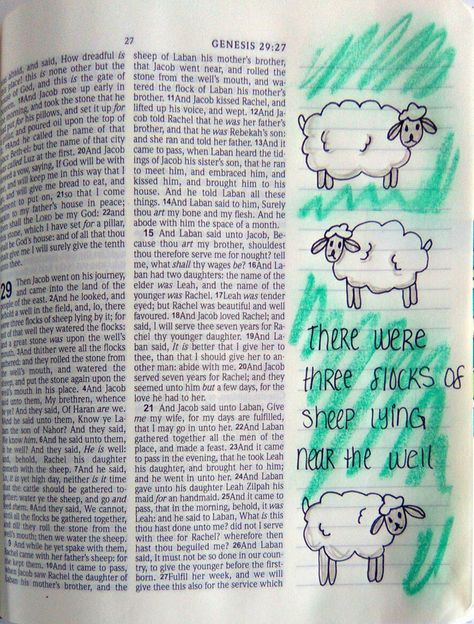 27
GENESIS 29:27
afraid, and said, How dreadful is
place! this is none other but the
of God, and this is the gate of
And Jacob rose up early in
morning, and took the stone that he
put for his pillows, and set it up for
and poured oil upon the top of
he called the name of that
but the name of that city
called Luz at the first. 20And Jacob
a vow, saying, If God will be with
and will keep me in this way that I
and will give me bread to eat, and
to put on, 21so that I come
to my father's house in peace;
shall the LORD be my God: 22and
stone, which I have set for a pillar,
be God's house: and of all that thou
give me I will surely give the tenth
29 Then Jacob went on his journey,
and came into the land of the
people of the east. 2And he looked, and
behold a well in the field, and, lo, there
were three flocks of sheep lying by it; for
out of that well they watered the flocks:
and a great stone was upon the well's
mouth. 3And thither were all the flocks
gathered: and they rolled the stone from
the well's mouth, and watered the
sheep, and put the stone again upon the
well's mouth in his place. 4And Jacob
said unto them, My brethren, whence
be ye? And they said, Of Haran are we.
And he said unto them, Know ye La-
ban the son of Nahor? And they said,
We know him. 6And he said unto them,
Is he well? And they said, He is well:
and, behold, Rachel his daughter
cometh with the sheep. 7And he said,
Lo, it is yet high day, neither is it time
that the cattle should be gathered to-
gether: water ye the sheep, and go and
feed them. 8And they said, We cannot,
until all the flocks be gathered together,
and till they roll the stone from the
well's mouth; then we water the sheep.
9 And while he yet spake with them,
Rachel came with her father's sheep; for
she kept them. 10And it came to pass,
when Jacob saw Rachel the daughter of
Laban his mother's brother, and the
sheep of Laban his mother's brother,
that Jacob went near, and rolled the
stone from the well's mouth, and wa-
tered the flock of Laban his mother's
brother. 11And Jacob kissed Rachel, and
lifted up his voice, and wept. 12And Ja-
cob told Rachel that he was her father's
brother, and that he was Rebekah's son:
and she ran and told her father. 13And it
came to pass, when Laban heard the tid-
ings of Jacob his sister's son, that he ran
to meet him, and embraced him, and
kissed him, and brought him to his
house. And he told Laban all these
things. 14And Laban said to him, Surely
thou art my bone and my flesh. And he
abode with him the space of a month.
15 And Laban said unto Jacob, Be-
cause thou art my brother, shouldest
thou therefore serve me for nought? tell
me, what shall thy wages be? 16And La-
ban had two daughters: the name of the
elder was Leah, and the name of the
younger was Rachel. 17Leah was tender
eyed; but Rachel was beautiful and well
favoured. 18And Jacob loved Rachel; and
said, I will serve thee seven years for Ra-
chel thy younger daughter. 19And La-
ban said, It is better that I give her to
thee, than that I should give her to an-
other man: abide with me. 20And Jacob
served seven years for Rachel; and they
seemed unto him but a few days, for the
love he had to her.
21 And Jacob said unto Laban, Give
me my wife, for my days are fulfilled,
that I may go in unto her. 22And Laban
gathered together all the men of the
place, and made a feast. 23And it came
to pass in the evening, that he took Leah
his daughter, and brought her to him;
and he went in unto her. 24And Laban
gave unto his daughter Leah Zilpah his
maid for an handmaid. 25And it came to
pass, that in the morning, behold, it was
Leah: and he said to Laban, What is this
thou hast done unto me? did not I serve
with thee for Rachel? wherefore then
hast thou beguiled me? 26And Laban
said, It must not be so done in our coun-
try, to give the younger before the first-
born. 27Fulfil her week, and we will
give thee this also for the service which
There were
three flocks of
sheep lying
near the well